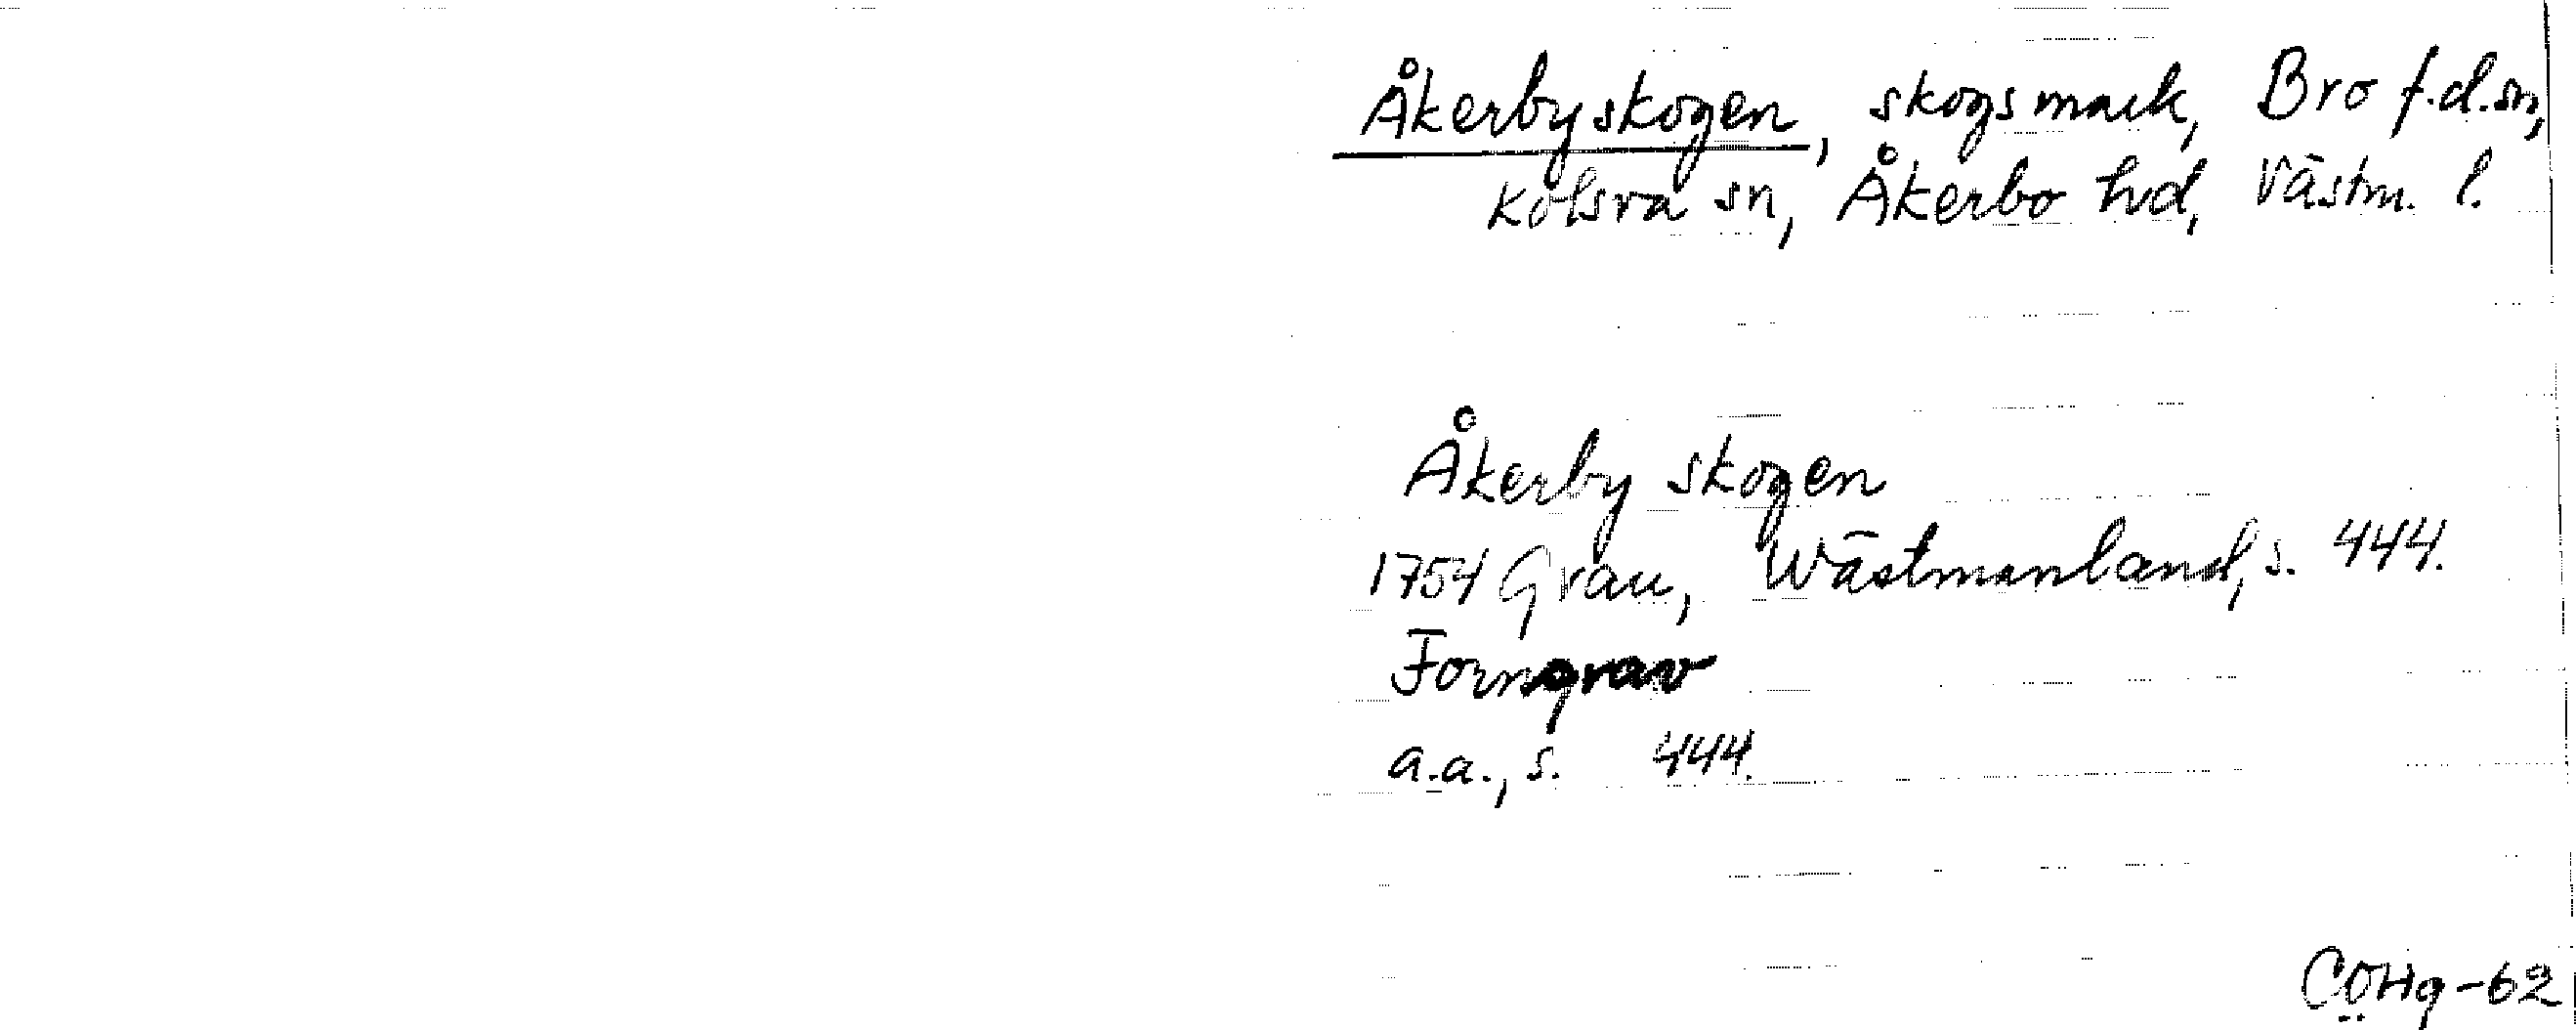 Åkerbyskogen, skogsmark, Bro f.d. sn,
Kolsva sn, Åkerbo hd, Västm. l.
Åkerby skogen
1754 Grau, Wästmanland, s. 444.
Forngrav
a.a., s. 444.
COHg-62